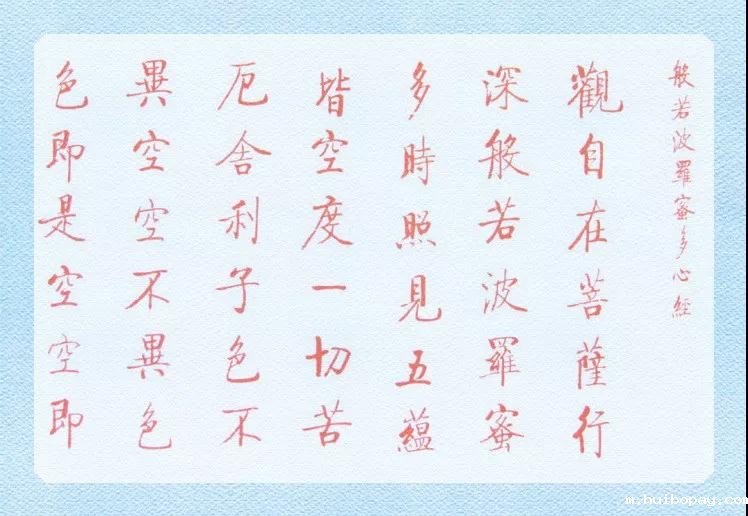 般若波羅蜜多心經
觀自在菩薩行
深般若波羅蜜
多時照見五蘊
皆空度一切苦
厄舍利子色不
異空空不異色
色即是空空即
m.huibopay.com